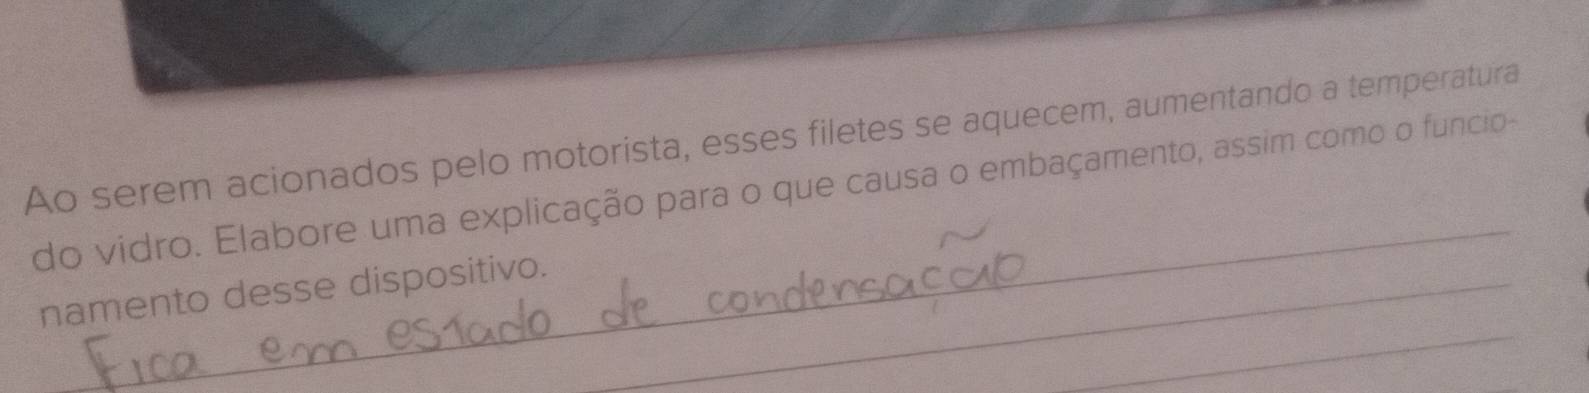 Ao serem acionados pelo motorista, esses filetes se aquecem, aumentando a temperatura
do vidro. Elabore uma explicação para o que causa o embaçamento, assim como o funcio-
namento desse dispositivo.
Fica em estado de condensação